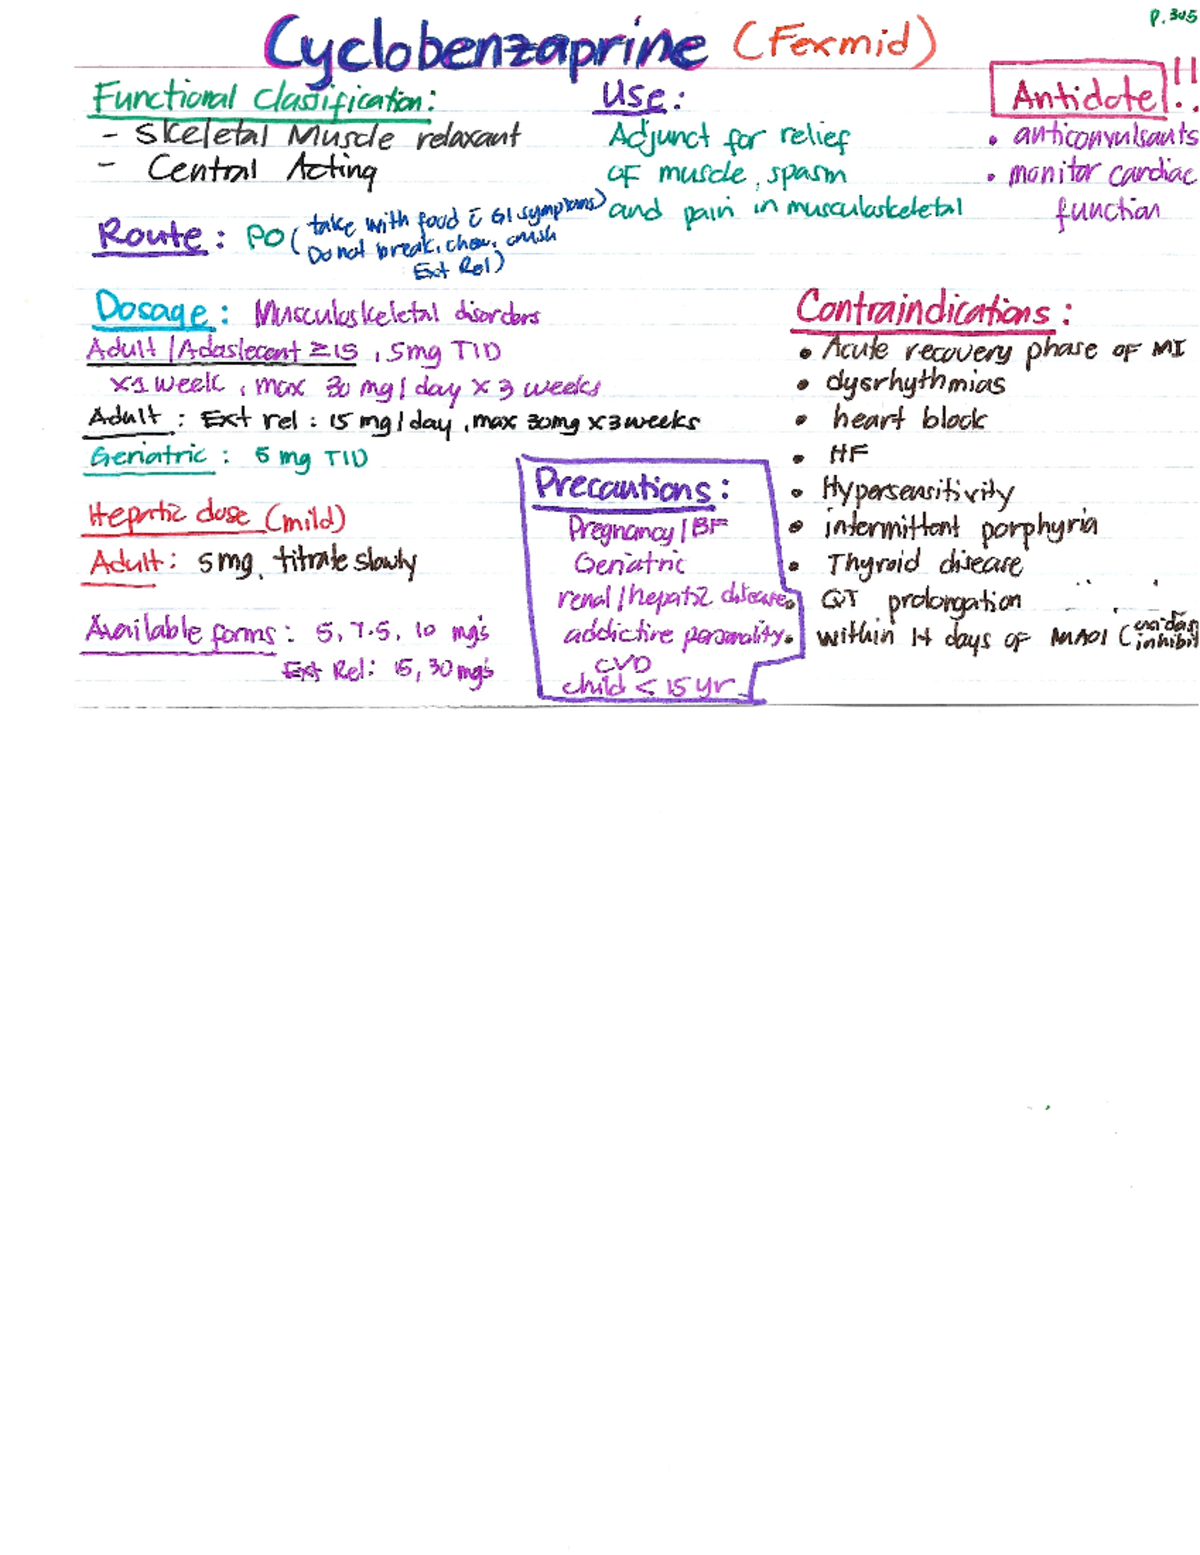 P.305
Cyclobenzaprine (Fexmid)
Functional Classification:
- Skeletal Muscle relaxant
- Central Acting
Use:
Adjunct for relief
of muscle, spasm
and pain in musculoskeletal
Antidote!!
• anticonvulsants
• monitor cardiac
function
Route: PO (take with food c̄ GI symptoms)
Do not break, chew, crush
Ext Rel)
Dosage: Musculoskeletal disorders
Adult/Adaslecent ≥15, 5mg TID
x1 week, max 30 mg/day x 3 weeks
Adult: Ext rel: 15 mg/day, max 30mg x 3 weeks
Geriatric: 5 mg TID
Hepatic dose (mild)
Adult: 5mg, titrate slowly
Available forms: 5, 7.5, 10 mg's
Ext Rel: 15, 30 mg's
Precautions:
Pregnancy/BF
Geriatric
renal/hepatic disease
addictive personality
CVD
child < 15 yr
Contraindications:
• Acute recovery phase of MI
• dysrhythmias
• heart block
• HF
• Hypersensitivity
• intermittent porphyria
• Thyroid disease
• QT prolongation
• within 14 days of MAOI (